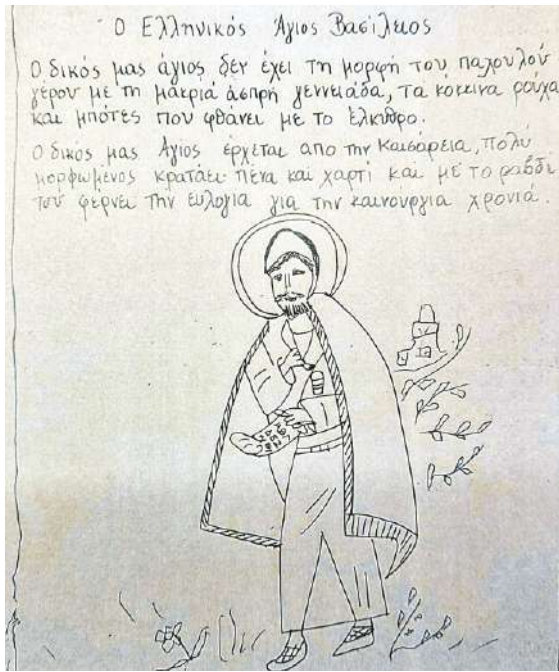 Ο Ελληνικός Άγιος Βασίλειος
Ο δικός μας άγιος δεν έχει τη μορφή του παχουλού
γέρου με τη μακριά άσπρη γεννειάδα, τα κόκκινα ρούχα
και μπότες που φθάνει με το έλκηθρο.
Ο δικός μας Άγιος έρχεται απο την Καισάρεια, πολύ
μορφωμένος κρατάει πένα και χαρτί και με το ραβδί
του φέρνει την ευλογία για την καινούργια χρονιά.